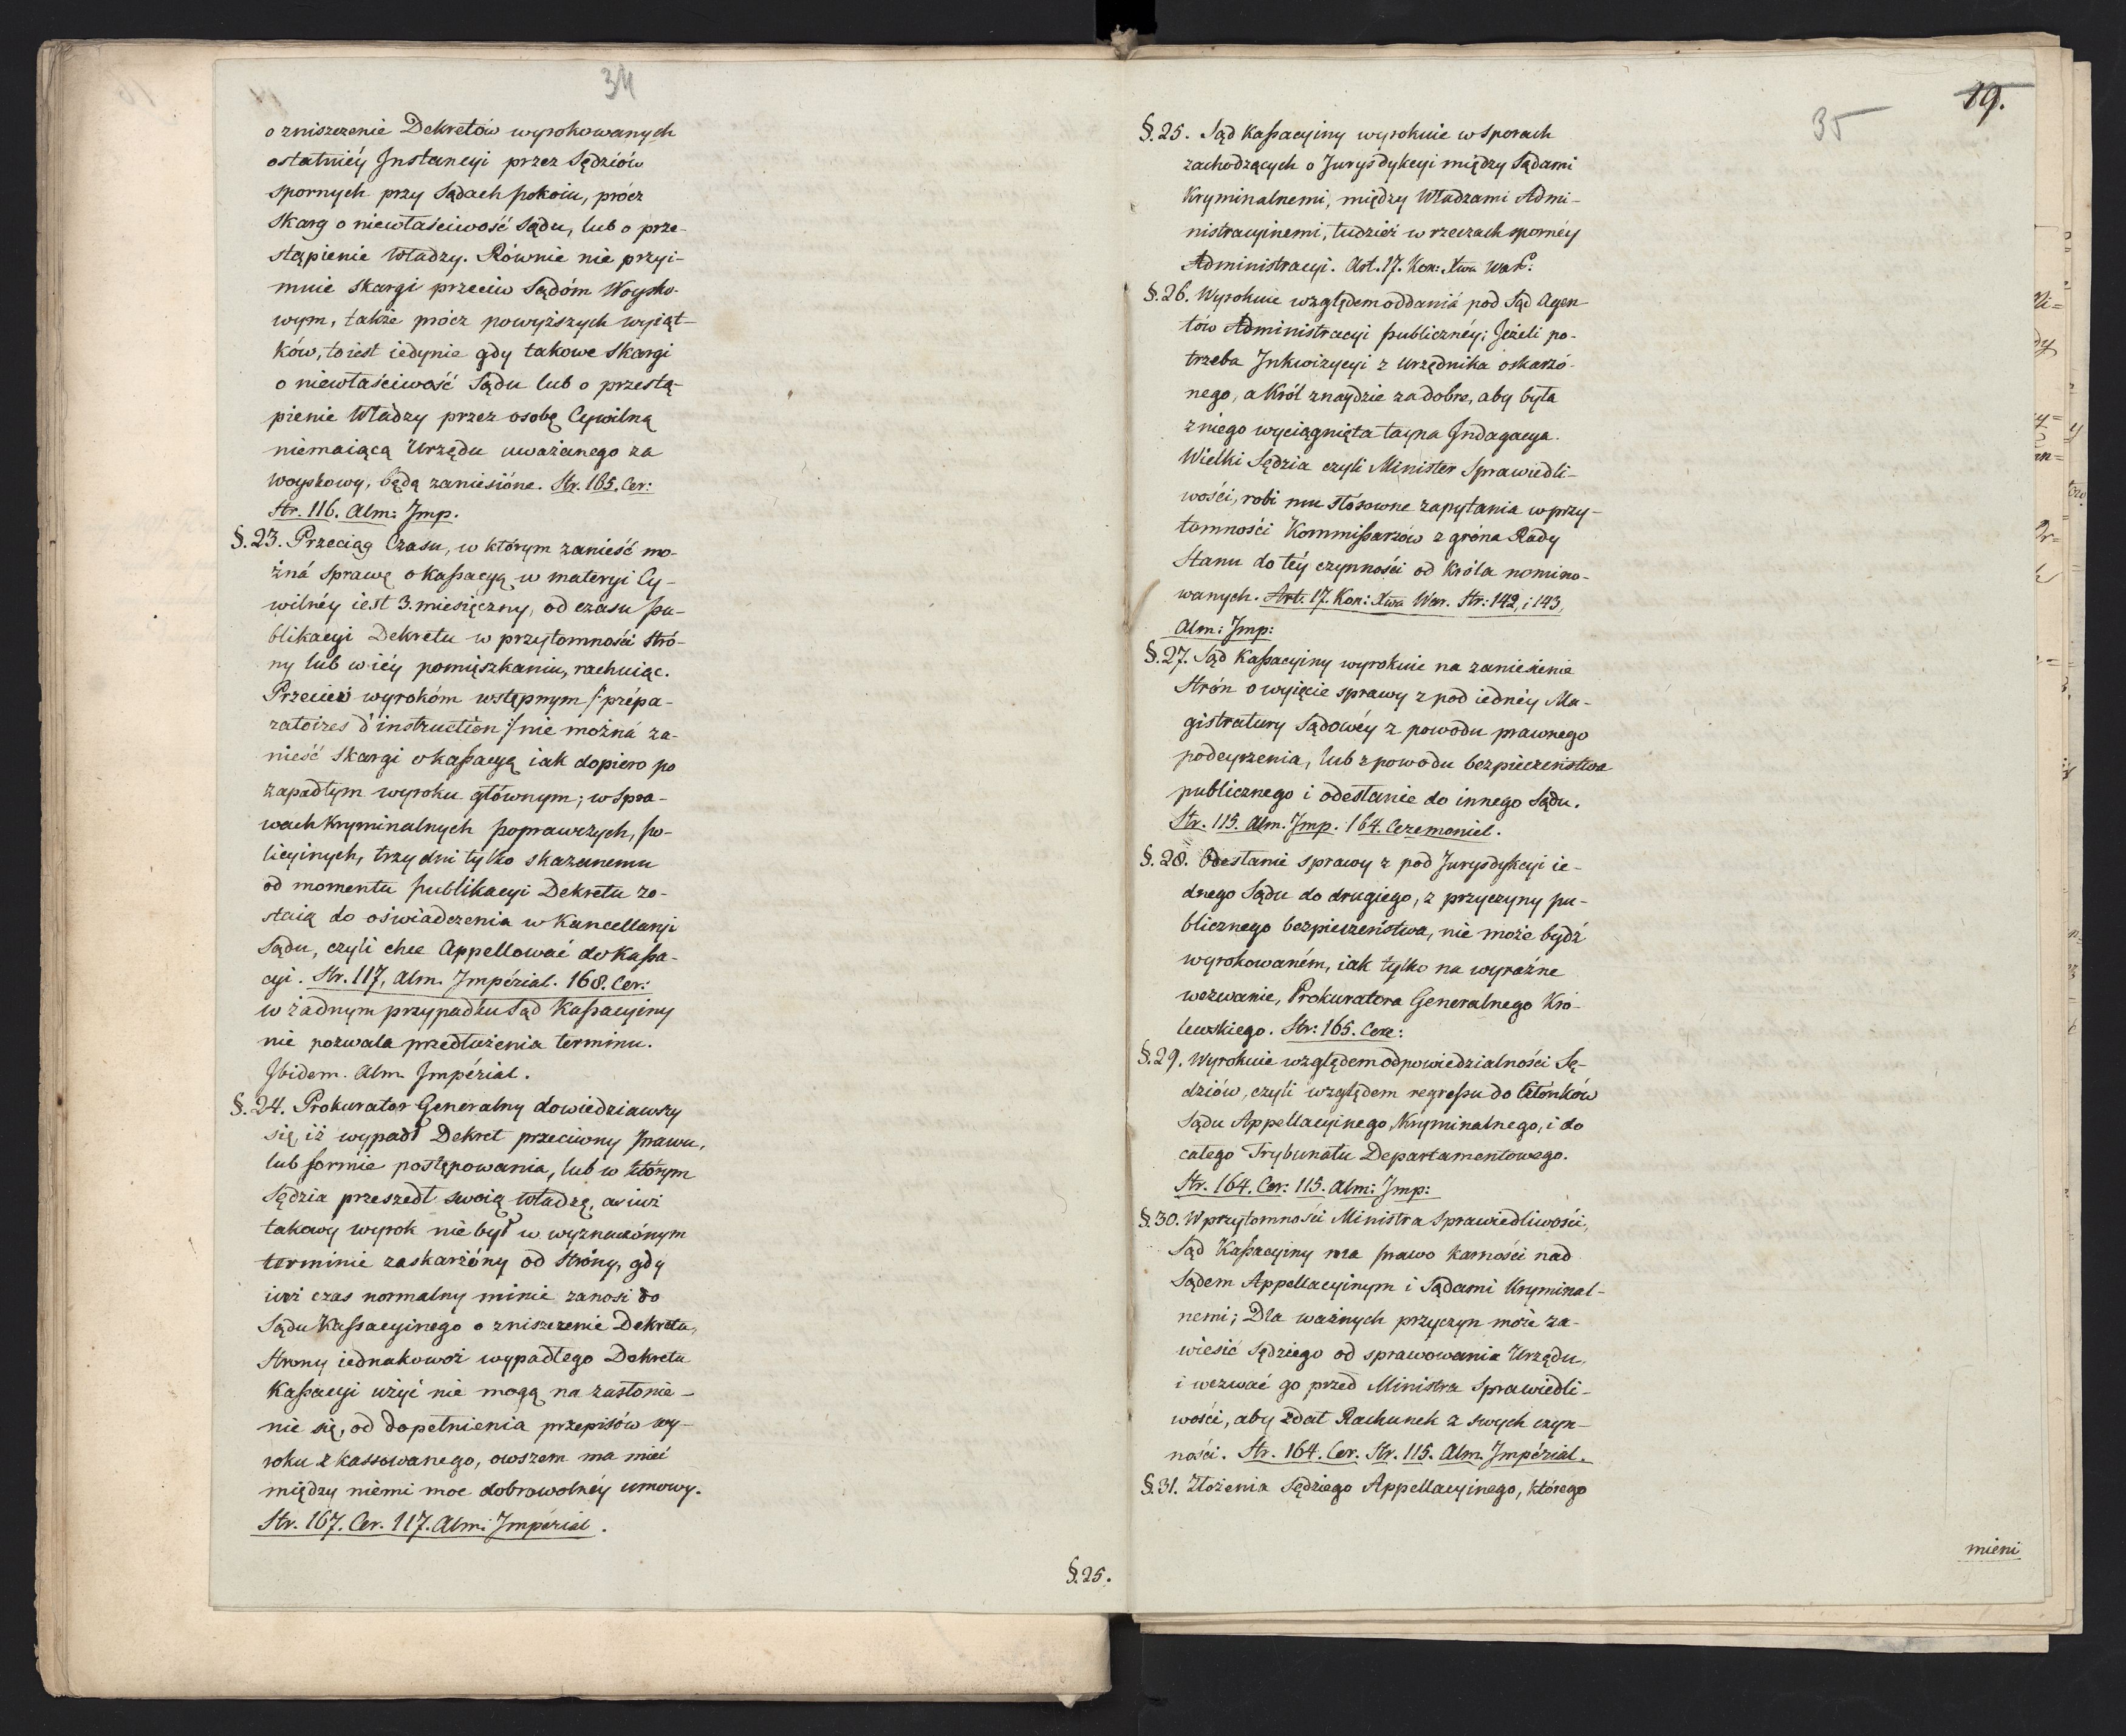 34
o zniszczenie Dekretów wyrokowanych
ostatniéy Instancyi przez Sędziów
spornych przy Sądach pokoiu, prócz
skarg o niewłaściwość Sądu, lub o prze-
stąpienie Władzy. Równie nie przyi-
muie skargi przeciw Sądóm Woysko-
wym, także prócz powyższych wyiąt-
ków, to iest iedynie gdy takowe skargi
o niewłaściwość Sądu lub o przestą-
pienie Władzy przez osobę Cywilną
niemaiącą Urzędu uważanego za
woyskowy, będą zaniesióne. Str. 165. Cer:
Str. 116. Alm: Imp.
§. 23. Przeciąg Czasu, w którym zanieść mo-
żná Sprawę o Kaſsacyą w materyi Cy-
wilnéy iest 3. miesięczny, od czasu pu-
blikacyi Dekretu w przytomności Stró-
ny lub w iéy pomięszkaniu, rachuiąc.
Przeciw wyrokóm wstępnym /: prépa-
ratoires d'instruction :/ nie możná za-
nieść Skargi o kaſsacyą iak dopiero po
zapadłym wyroku głównym; w Spra-
wach Kryminalnych poprawczych, po-
licyinych, trzy dni tylko skazanemu
od momentu publikacyi Dekretu zo-
staią do oświadczenia w Kancellaryi
Sądu, czyli chce Appellować do Kaſsa-
cyi. Str. 117, Alm. Impérial. 168. Cer:
w żadnym przypadku Sąd Kaſsacyiny
nie pozwala przedłużenia terminu.
Ibidem. Alm. Impérial.
§. 24. Prokurator Generalny dowiedziawszy
się, iż wypadł Dekret przeciwny prawu,
lub formie postępowania, lub w którym
Sędzia przeszedł swoią władzę, a iuż
takowy wyrok nie był w wyznaczónym
terminie zaskarżóny od Stróny, gdy
iuż czas normalny minie zanosi do
Sądu Kaſsacyinego o zniszczenie Dekretu,
Strony iednakowoż wypadłego Dekretu
Kaſsacyi użyć nie mogą na zasłonie-
nie się, od dopełnienia przepisów wy-
roku zkassowanego, owszem ma mieć
między niémi moc dobrowolnéy umowy.
Str. 167. Cer. 117. Alm: Impérial.
§. 25.
19.
35
§. 25. Sąd Kaſsacyiny wyrokuie w Sporach
zachodzących o Jurysdykcyi między Sądami
Kryminalnemi, między Władzami Admi-
nistracyinemi, tudzież w rzeczach spornéy
Administracyi. Art. 17. Kon: Xwa War:
§. 26. Wyrokuie względem oddaniá pod Sąd Agen-
tów Administracyi publicznéy; Jeżeli po-
trzeba Inkwizycyi z Urzędnika oskarżó-
nego, a Król znaydzie za dobre, aby była
z niego wyciągnięta tayna Indagacya.
Wielki Sędzia czyli Minister Sprawiedli-
wości, robi mu stósowne zapytania w przy-
tomności Kommiſsarzów z gróna Rady
Stanu do téy czynności od Króla nomino-
wanych. Art. 17. Kon: Xwa War. Str: 142, i 143,
Alm: Imp:
§. 27. Sąd Kaſsacyiny wyrokuie na zaniesienie
Strón o wyięcie sprawy z pod iednéy Ma-
gistratury Sądowéy z powodu prawnego
podeyrzenia, lub z powodu bezpieczeństwa
publicznego i odesłanie do innego Sądu.
Str. 115. Alm. Imp. 164. Ceremoniel.
§. 28. Odesłanie sprawy z pod Jurysdykcyi ie-
dnego Sądu do drugiego, z przyczyny pu-
blicznego bezpieczeństwa, nie może bydź
wyrokowaném, iak tylko na wyraźne
wezwanie, Prokuratora Generalnego Kró-
lewskiego. Str: 165. Cere:
§. 29. Wyrokuie względem odpowiedzialności Sę-
dziów, czyli względem regreſsu do Członków
Sądu Appellacyinego, Kryminalnego, i do
całego Trybunału Departamentowego.
Str. 164. Cer: 115. Alm: Imp:
§. 30. W przytomności Ministra Sprawiedliwości,
Sąd Kaſsacyiny ma prawo karności nad
Sądem Appellacyinym i Sądami Kryminal-
nemi; Dla ważnych przyczyn może za-
wiesić Sędziego od sprawowania Urzędu,
i wezwać go przed Ministra Sprawiedli-
wości, aby zdał Rachunek z swych czyn-
ności. Str. 164. Cer. Str. 115. Alm. Impérial.
§. 31. Złożenia Sędziego Appellacyinego, którego
mieni